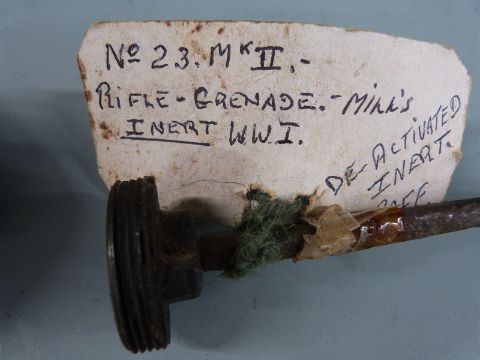 Nº 23. MK II.-
RIFLE-GRENADE.-MILL'S
INERT WWI.
DE-ACTIVATED
INERT.